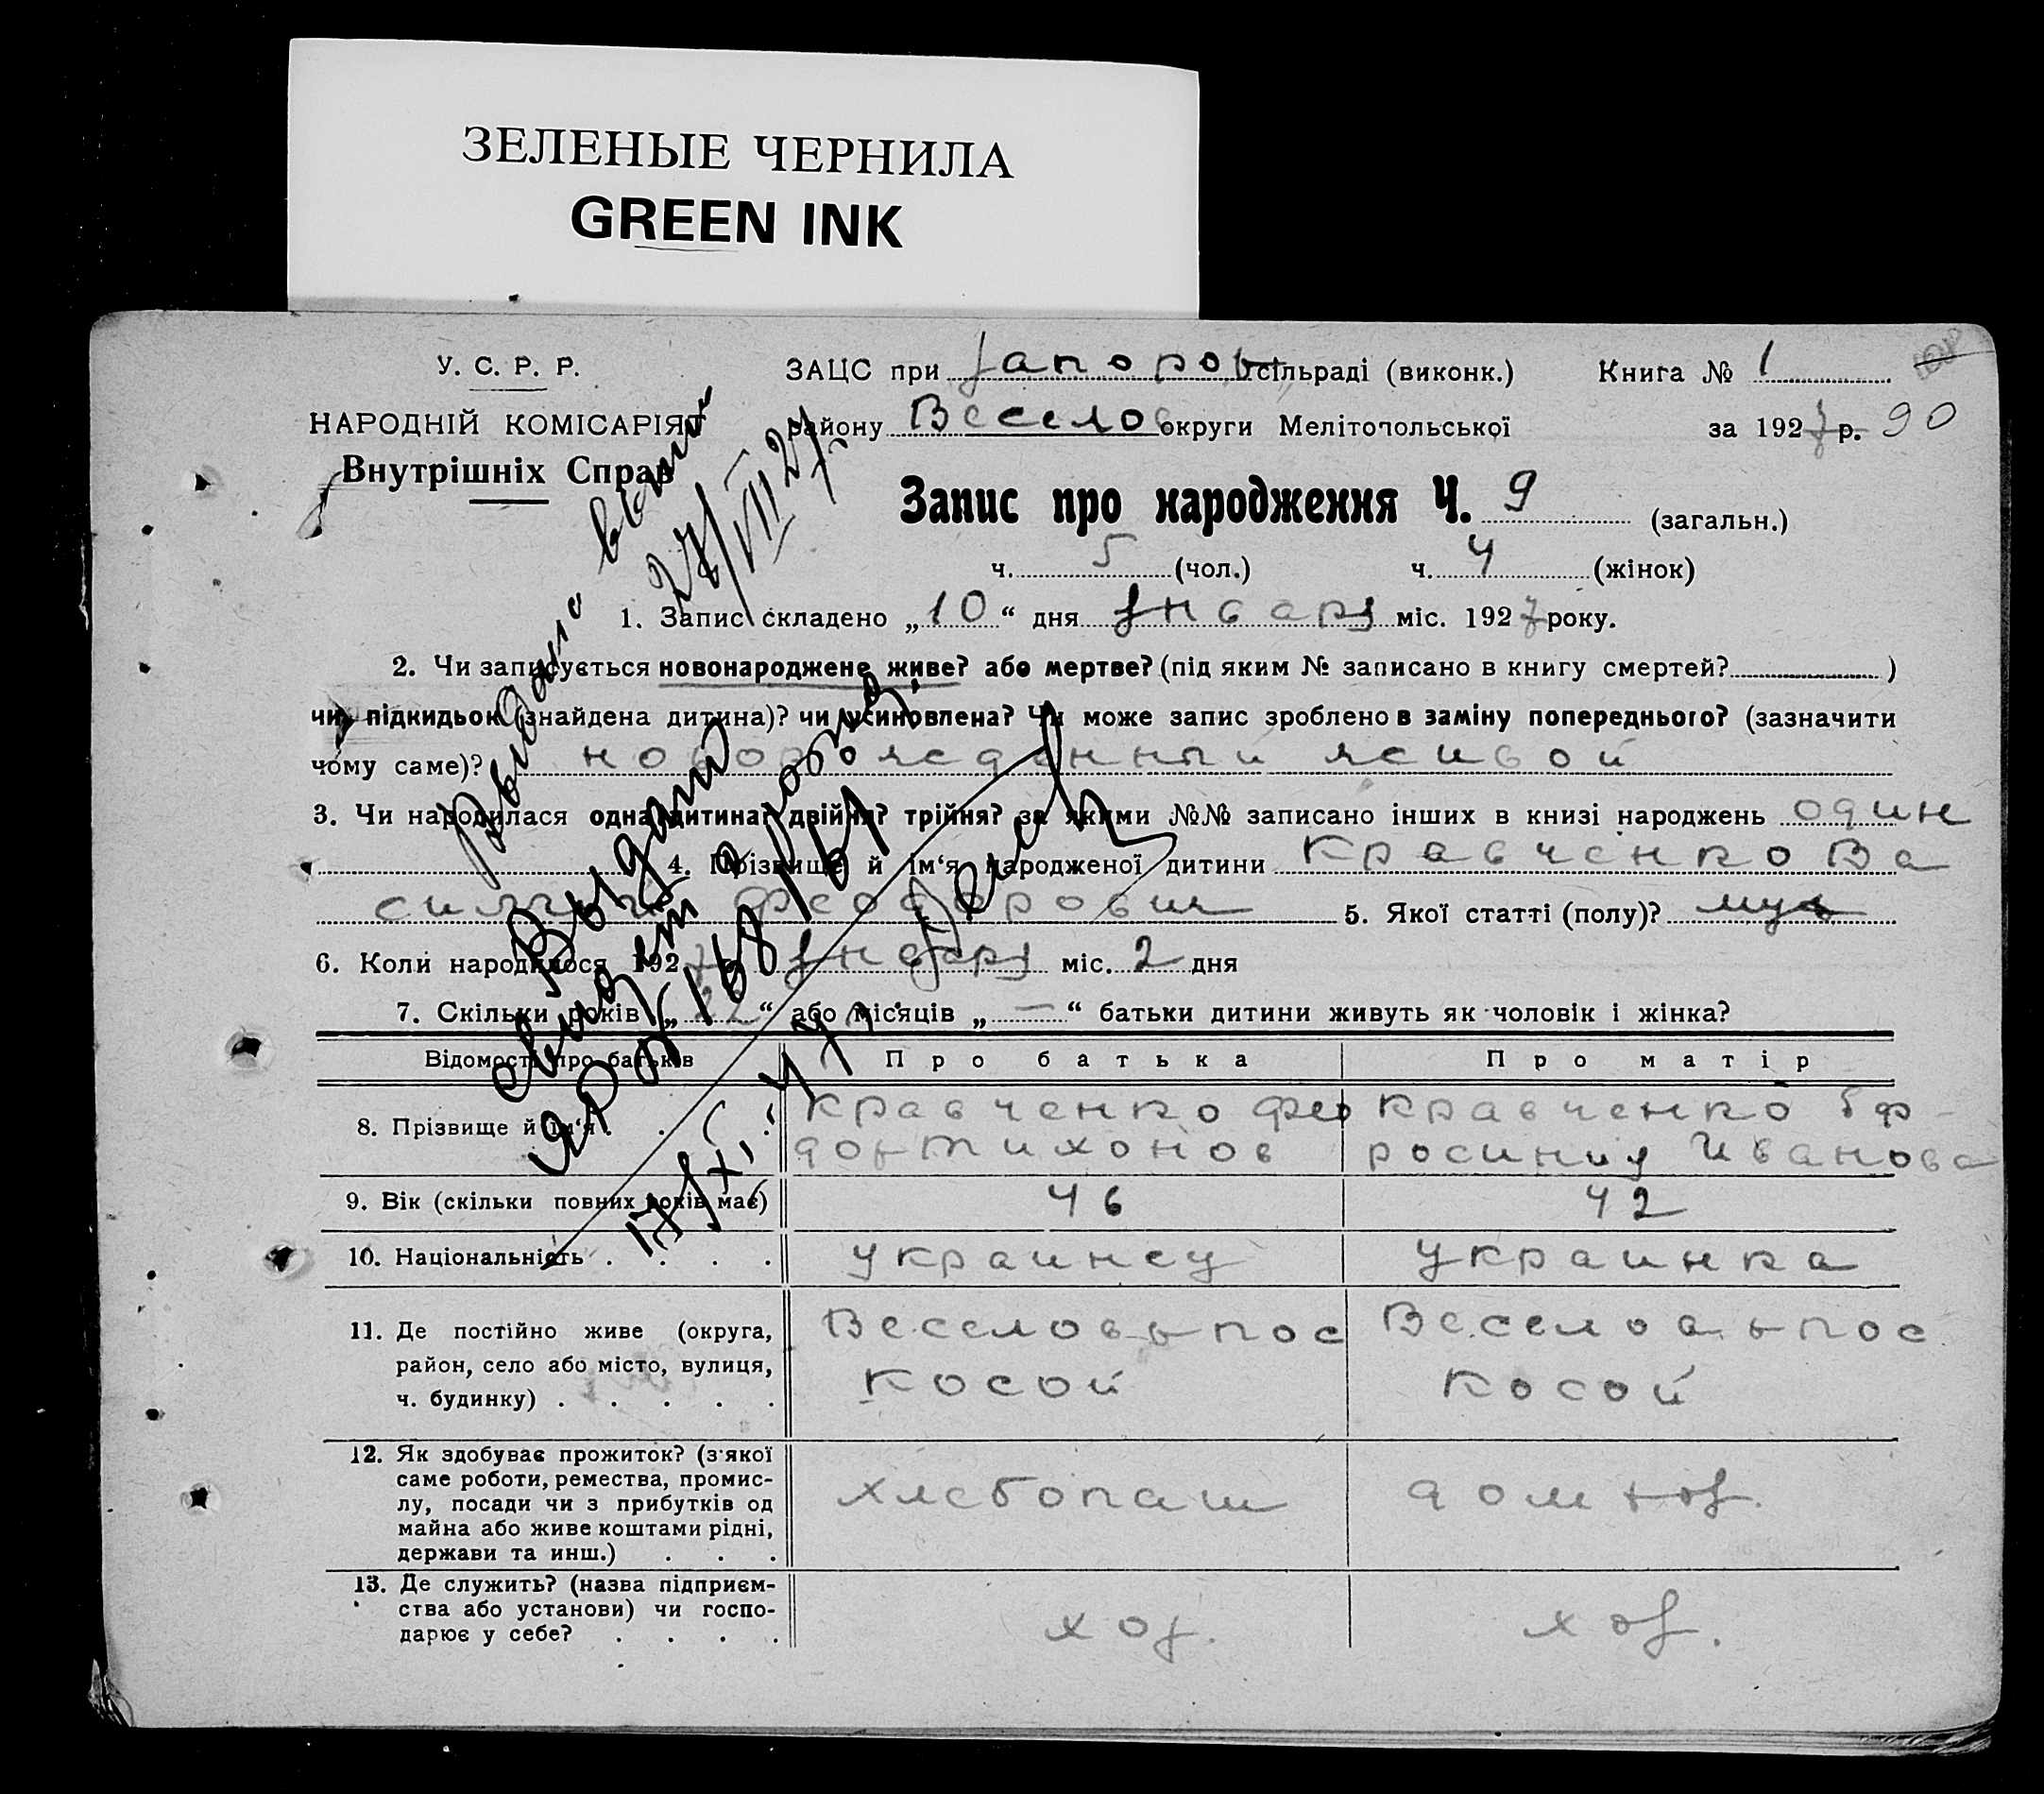 ЗЕЛЕНЫЕ ЧЕРНИЛА
GREEN INK
У. С. Р. Р.
НАРОДНІЙ КОМІСАРІЯТ
Внутрішніх Справ
ЗАЦС при Запоров сільраді (виконк.)
району Веселов округи Мелітопольської
Книга № 1
за 1927 р. 90
Запис про народження Ч. 9 (загальн.)
ч. 5 (чол.) ч. 4 (жінок)
1. Запис складено „10“ дня января міс. 1927 року.
2. Чи записується новонароджене живе? або мертве? (під яким № записано в книгу смертей? )
чи підкидьок (знайдена дитина)? чи усиновлена? Чи може запис зроблено в заміну попереднього? (зазначити
чому саме)? новорожденный живой
3. Чи народилася одна дитина? двійня? трійня? за якими №№ записано інших в книзі народжень один
4. Прізвище й ім‘я народженої дитини Кравченко Ва
силий Феодорович 5. Якої статті (полу)? муж
6. Коли народилося 1927 р. января міс. 2 дня
7. Скільки років „22“ або місяців „—“ батьки дитини живуть як чоловік і жінка?
Відомості про батьків Про батька Про матір
8. Прізвище й ім‘я . . . .
Кравченко Фео
дор Тихонов
Кравченко Еф-
росиния Иванова
9. Вік (скільки повних років має) 46 42
10. Національність . . . . украинец украинка
11. Де постійно живе (округа,
район, село або місто, вулиця,
ч. будинку) . . . . .
Веселовь пос
Косой
Веселовь пос
Косой
12. Як здобуває прожиток? (з якої
саме роботи, ремества, промис-
лу, посади чи з прибутків од
майна або живе коштами рідні,
держави та инш.) . . .
хлебопаш
дом хоз.
13. Де служить? (назва підприєм-
ства або установи) чи госпо-
дарює у себе? . . . .
хоз.
хоз.
Выдано
27/VIII 27
Выдано
свидет
ЯР 168161
17/XI